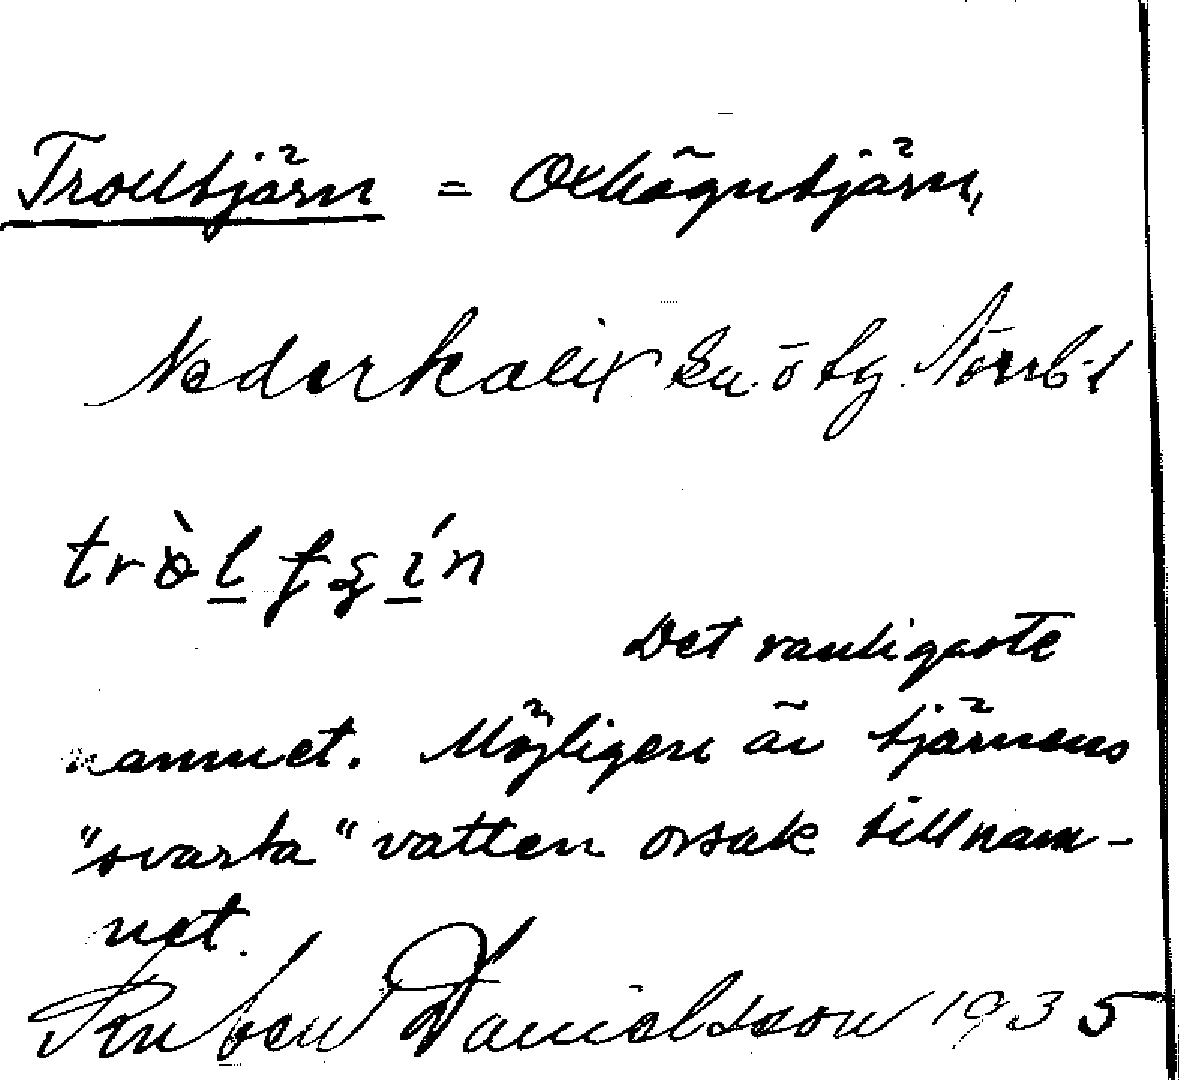 Trolltjärn = Oxhågntjärn,
Nederkalix sn ö tg. Norrb. l
Det vanligaste
namnet. Möjligen är tjärnens
"svarta" vatten orsak till nam-
net.
Ruben Danielsson 1935